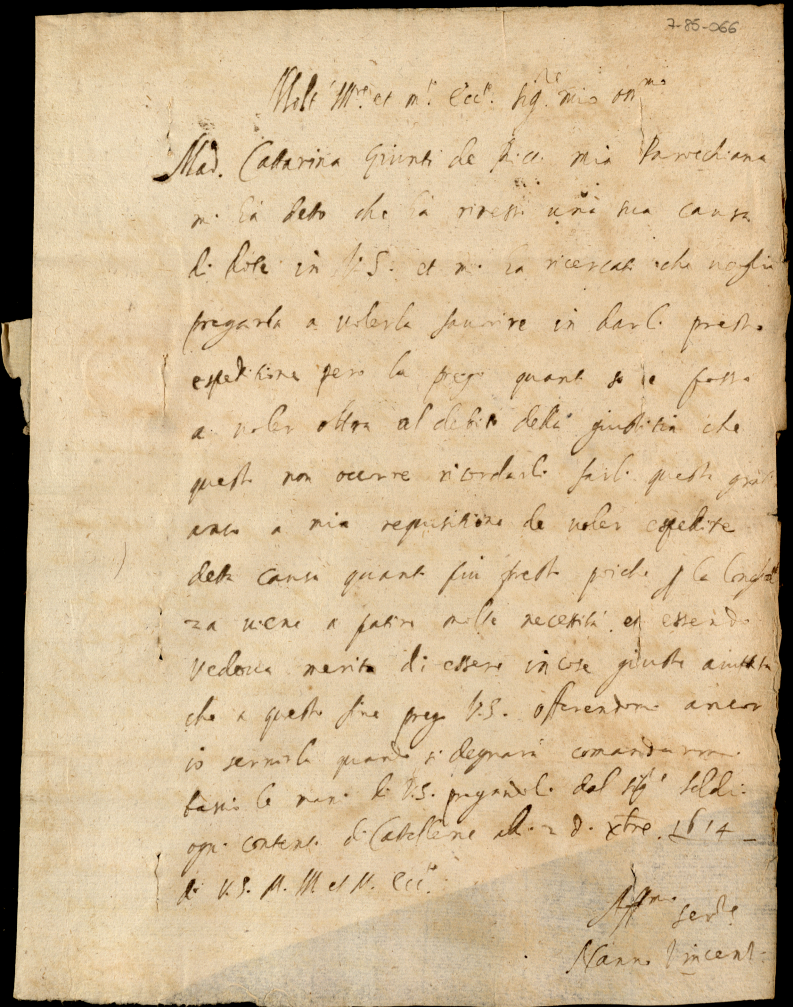 7-85-066
Molt' Ill.re et m.to Ecc.te sig.re mio oss.mo
Mad. Cattarina Giunti de Ricc. mia Parochiana
mi hà detto che hà rimessi una sua causa
di dote in V.S. et mi ha ricercati che voglia
pregarla a volerla favorire in darli presta
espeditione pero la prego quanto so e posso
a voler oltra al debito della giustitia che
questo non ocorre ricordarli farli questa grati
anco a mia requisitione de voler espedire
detta causa quanto piu presto poiche p la
za viene a patire molte necessità et essendo
vedova merita di essere in cose giuste aiutata
che a questo fine prego V.S. offerendomi ancor
io servirla quando si degnarà comandarmi
bascio le mani di V.S. pregandoli dal sig.r
ogni contento di adi 2 d. xbre. 1614
di V.S. M. Ill et M. Ecc.te
Aff.mo ser.re
Vincenti